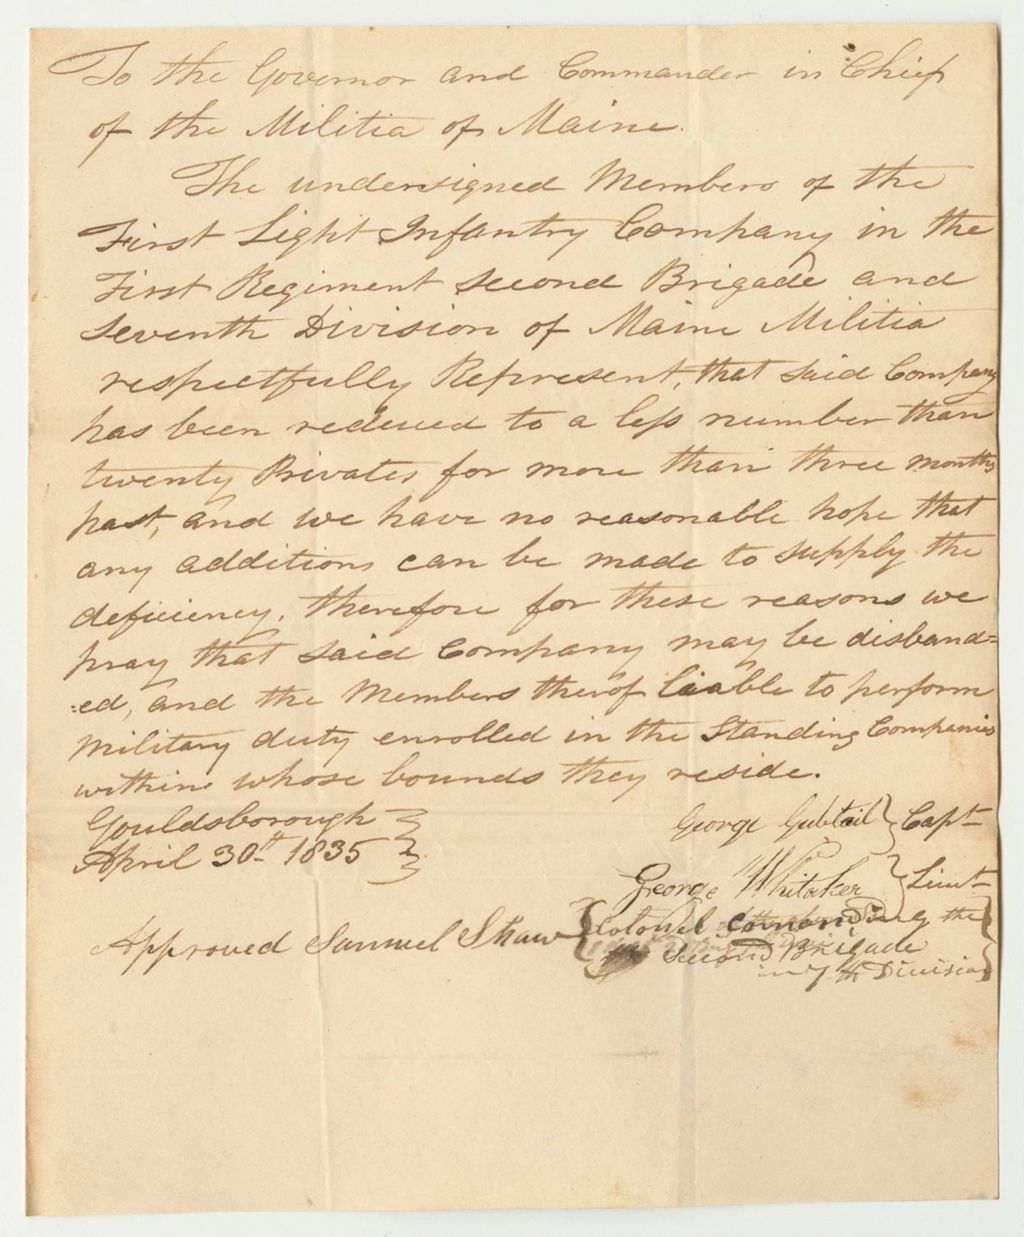 To the Governor and Commander in Chief
of the Militia of Maine.
The undersigned Members of the
First Light Infantry Company in the
First Regiment Second Brigade and
Seventh Division of Maine Militia
respectfully Represent, that said Company
has been reduced to a less number than
twenty Privates for more than three months
past, and we have no reasonable hope that
any additions can be made to supply the
deficiency, therefore for these reasons we
pray that said Company may be disband=
=ed, and the Members therof liable to perform
Military duty enrolled in the Standing Companies
within whose bounds they reside.
Gouldsborough
April 30th 1835
George Gubtail Capt
George Whitaker Lieut
Approved Samuel Shaw Colonel comanding the
Second Brigade
in 7th Division